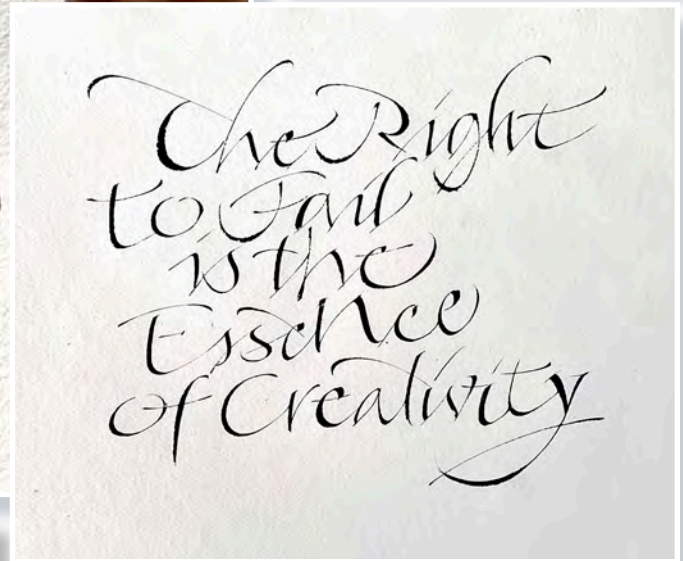 The Right
to Fail
is the
Essence
of Creativity